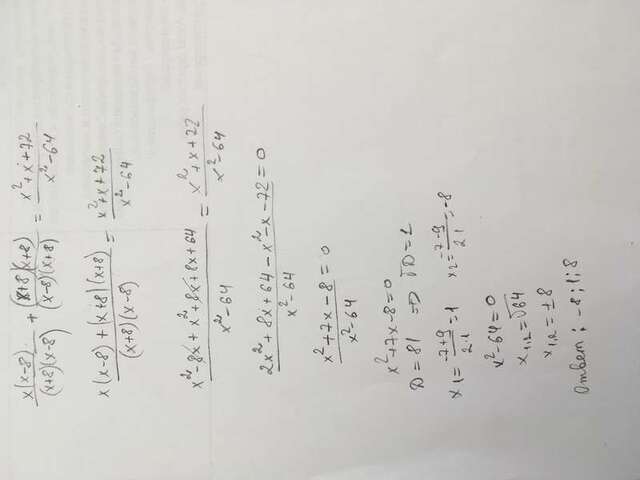 x(x-8)/(x+8)(x-8) + (x+8)(x+8)/(x-8)(x+8) = x²+x+72/x²-64
x(x-8)+(x+8)(x+8)/(x+8)(x-8) = x²+x+72/x²-64
x²-8x+x²+8x+8x+64/x²-64 = x²+x+72/x²-64
2x²+8x+64-x²-x-72/x²-64 = 0
x²+7x-8/x²-64 = 0
x²+7x-8=0
D=81 => √D=1
x₁=-7+9/2·1=1 x₂=-7-9/2·1=-8
x²-64=0
x₁,₂=√64
x₁,₂=±8
Ответ: -8;1;8